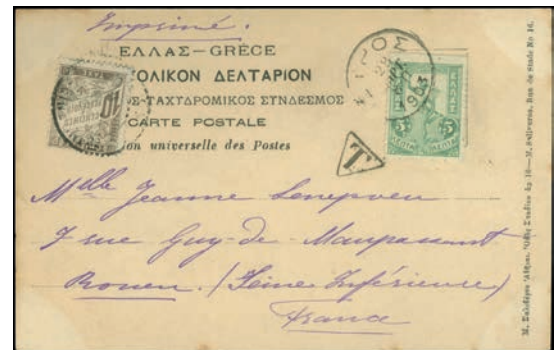 Imprimé.
ΕΛΛΑΣ–GRÈCE
ΟΛΙΚΟΝ ΔΕΛΤΑΡΙΟΝ
ΟΣ-ΤΑΧΥΔΡΟΜΙΚΟΣ ΣΥΝΔΕΣΜΟΣ
CARTE POSTALE
on universelle des Postes
10
ΕΛΛΑΣ
5 5
ΛΕΠΤΑ ΛΕΠΤΑ
T
Mlle Jeanne Senepveu
7 rue Guy-de-Maupassant
Rouen. (Seine Inférieure)
France